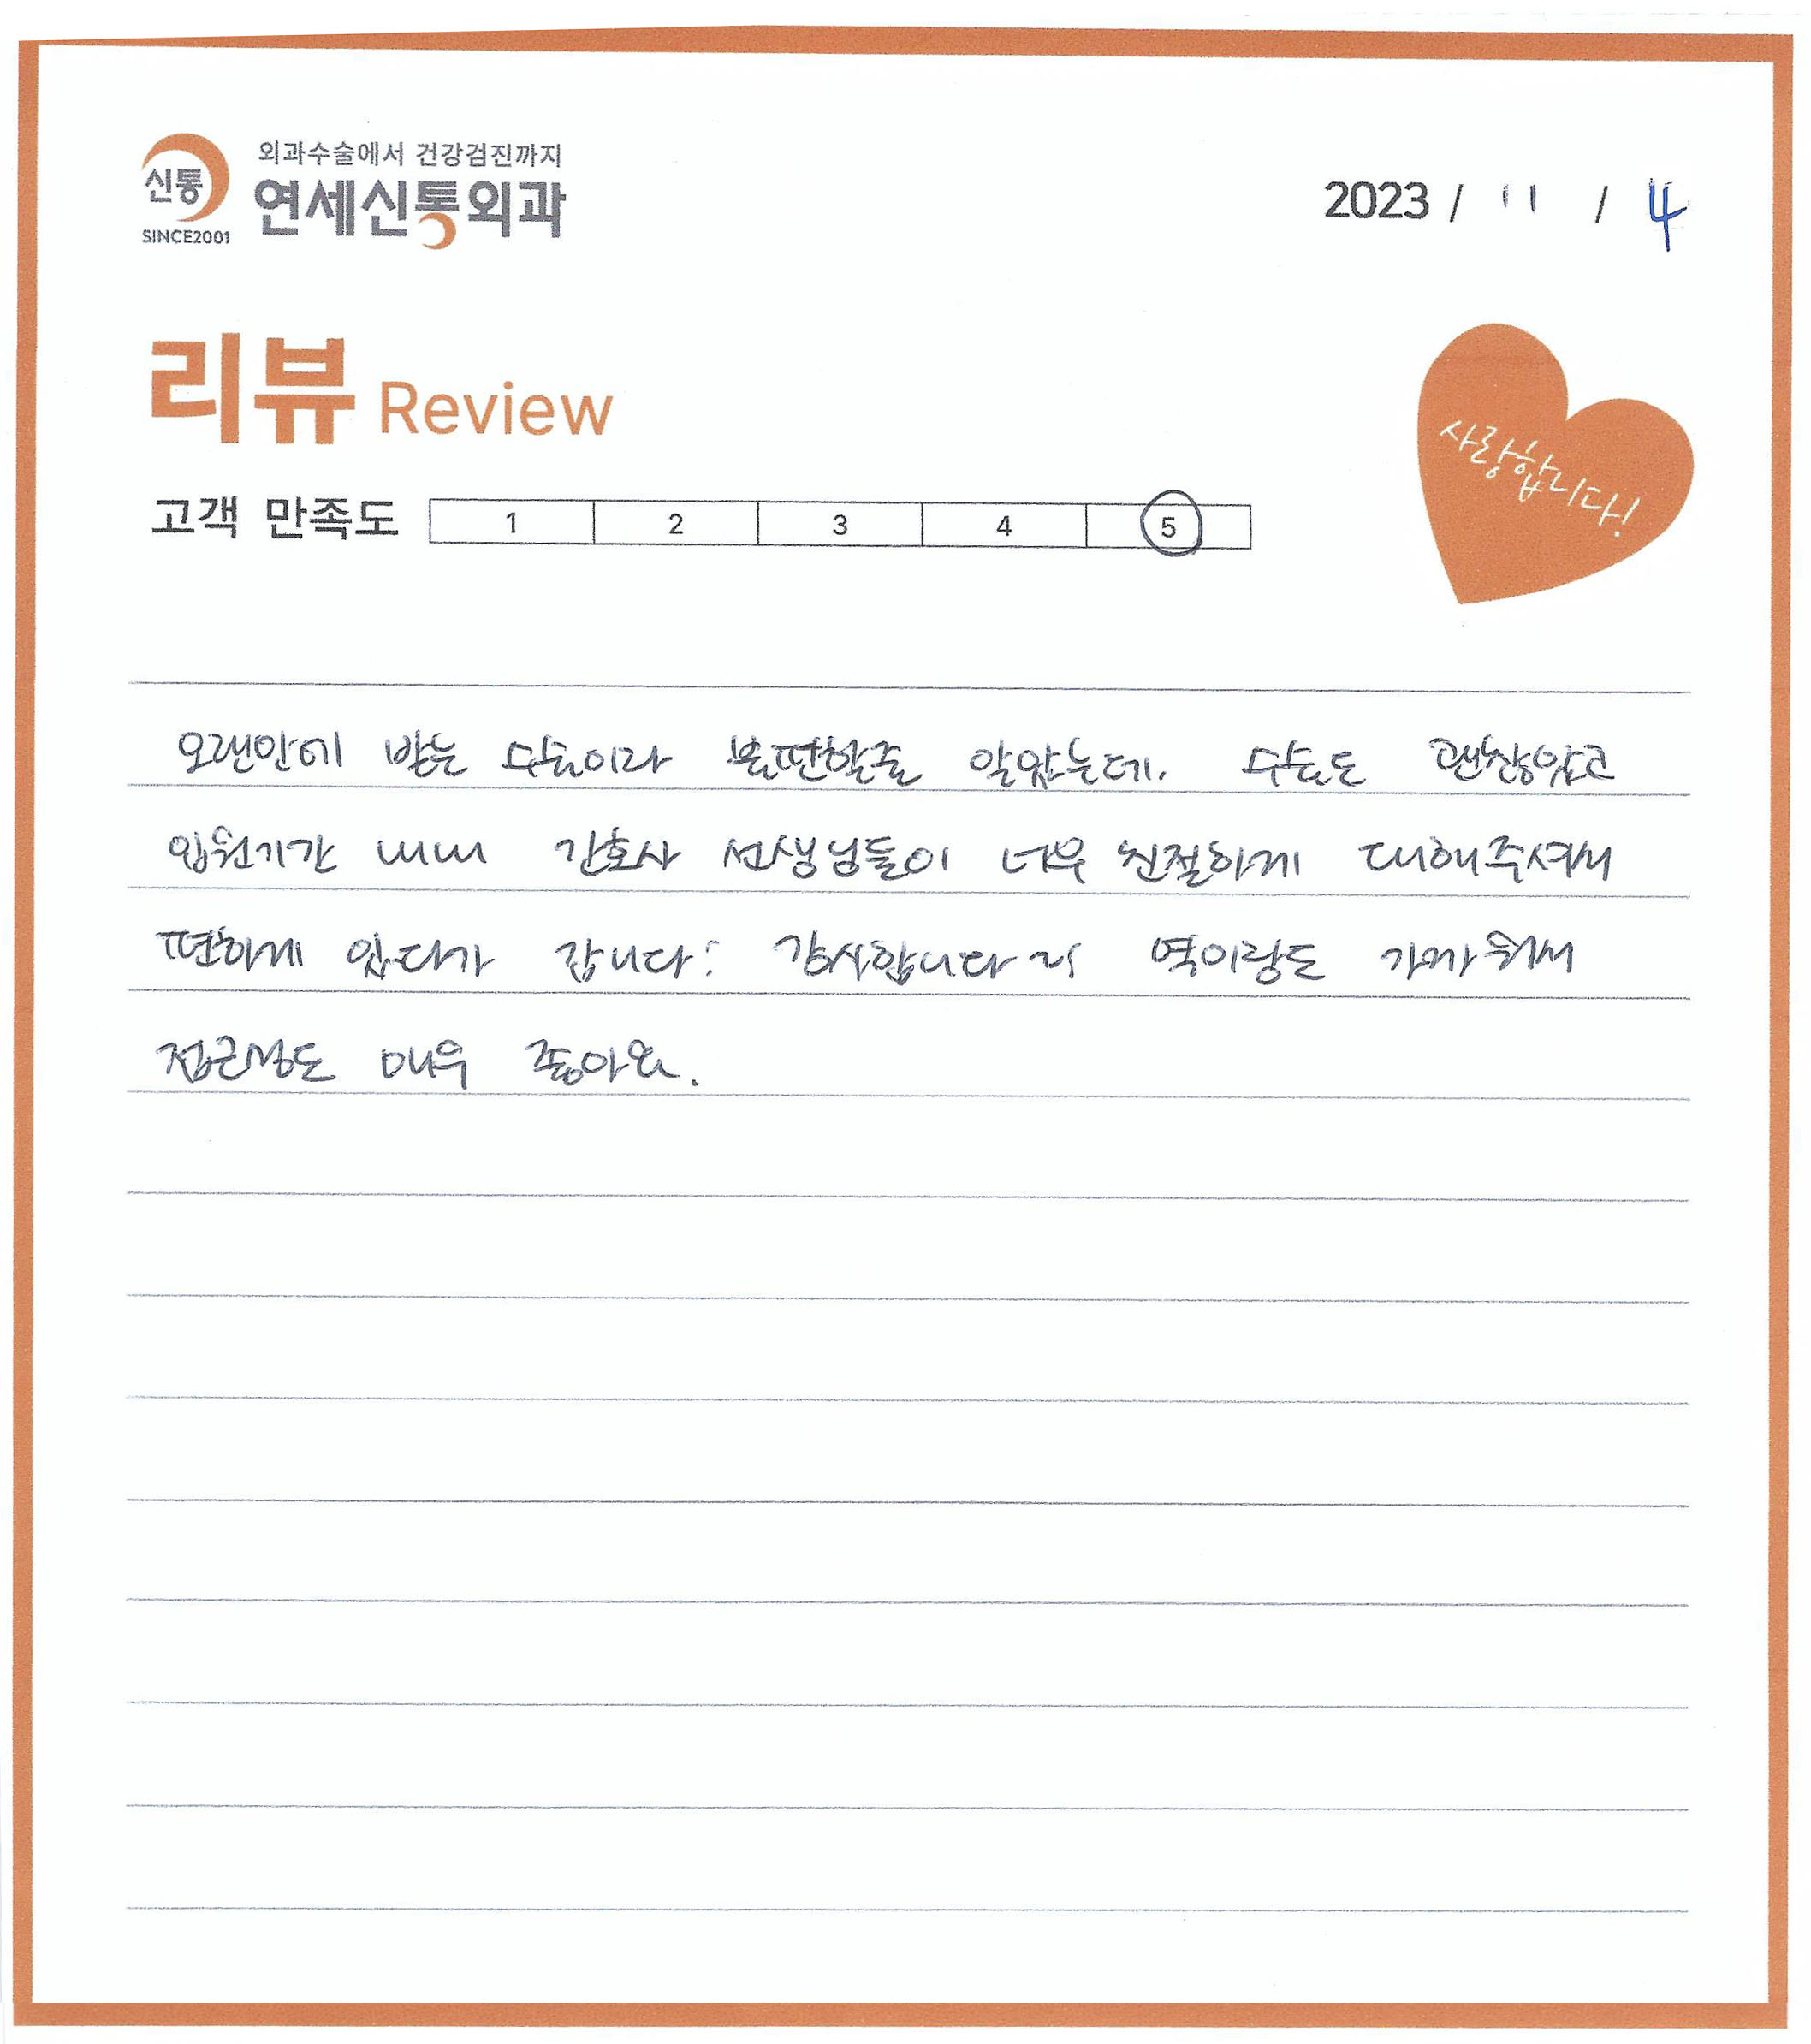 신통
SINCE2001
외과수술에서 건강검진까지
연세신통외과
2023 / 11 / 4
리뷰 Review
사랑합니다!
고객 만족도 1 2 3 4 5
오랜만에 받는 수술이라 불편할줄 알았는데. 수술도 괜찮았고
입원기간 내내 간호사 선생님들이 너무 친절하게 대해주셔서
편하게 있다가 갑니다! 감사합니다 ㅋㅋ 역이랑도 가까워서
접근성도 매우 좋아요.